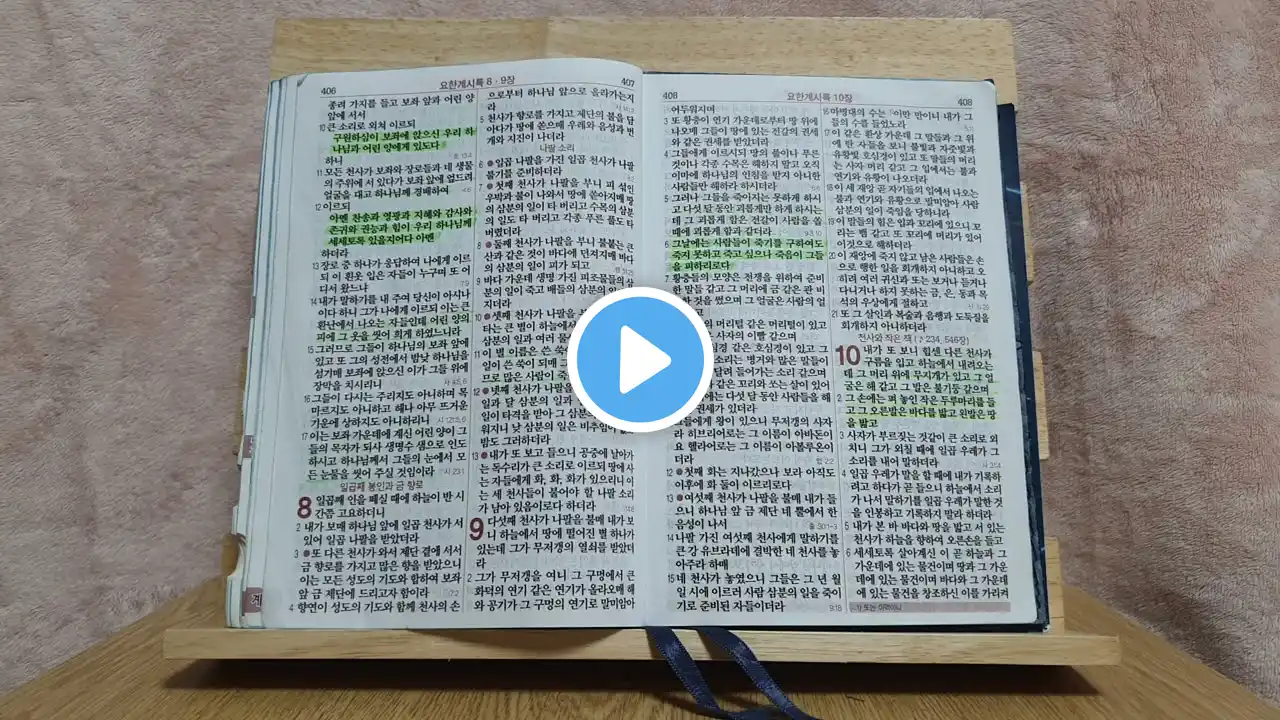 406
요한계시록 8 · 9장
407
종려 가지를 들고 보좌 앞과 어린 양
앞에 서서
10 큰 소리로 외쳐 이르되
구원하심이 보좌에 앉으신 우리 하
나님과 어린 양에게 있도다
하니
11 모든 천사가 보좌와 장로들과 네 생물
의 주위에 서 있다가 보좌 앞에 엎드려
얼굴을 대고 하나님께 경배하여
12 이르되
아멘 찬송과 영광과 지혜와 감사와
존귀와 권능과 힘이 우리 하나님께
세세토록 있을지어다 아멘
하더라
13 장로 중 하나가 응답하여 나에게 이르
되 이 흰옷 입은 자들이 누구며 또 어
디서 왔느냐
14 내가 말하기를 내 주여 당신이 아시나
이다 하니 그가 나에게 이르되 이는 큰
환난에서 나오는 자들인데 어린 양의
피에 그 옷을 씻어 희게 하였느니라
15 그러므로 그들이 하나님의 보좌 앞에
있고 또 그의 성전에서 밤낮 하나님을
섬기매 보좌에 앉으신 이가 그들 위에
장막을 치시리니
16 그들이 다시는 주리지도 아니하며 목
마르지도 아니하고 해나 아무 뜨거운
기운에 상하지도 아니하리니
17 이는 보좌 가운데에 계신 어린 양이 그
들의 목자가 되사 생명수 샘으로 인도
하시고 하나님께서 그들의 눈에서 모
든 눈물을 씻어 주실 것임이라
일곱째 봉인과 금 향로
8 일곱째 인을 떼실 때에 하늘이 반 시
간쯤 고요하더니
2 내가 보매 하나님 앞에 일곱 천사가 서
있어 일곱 나팔을 받았더라
3 ●또 다른 천사가 와서 제단 곁에 서서
금 향로를 가지고 많은 향을 받았으니
이는 모든 성도의 기도와 합하여 보좌
앞 금 제단에 드리고자 함이라
4 향연이 성도의 기도와 함께 천사의 손
으로부터 하나님 앞으로 올라가는지
라
5 천사가 향로를 가지고 제단의 불을 담
아다가 땅에 쏟으매 우레와 음성과 번
개와 지진이 나더라
나팔 소리
6 ●일곱 나팔을 가진 일곱 천사가 나팔
불기를 준비하더라
7 ●첫째 천사가 나팔을 부니 피 섞인
우박과 불이 나와서 땅에 쏟아지매 땅
의 삼분의 일이 타 버리고 수목의 삼분
의 일도 타 버리고 각종 푸른 풀도 타
버렸더라
8 ●둘째 천사가 나팔을 부니 불붙는 큰
산과 같은 것이 바다에 던져지매 바다
의 삼분의 일이 피가 되고
9 바다 가운데 생명 가진 피조물들의 삼
분의 일이 죽고 배들의 삼분의 일이
지더라
10 ●셋째 천사가 나팔을
타는 큰 별이 하늘에서
분의 일과 여러 물
11 이 별 이름은 쓴 쑥
일이 쓴 쑥이 되매
므로 많은 사람이 죽
12 ●넷째 천사가 나팔을
일과 달 삼분의 일과
일이 타격을 받아 그 삼분
워지니 낮 삼분의 일은 비추임이 없
밤도 그러하더라
13 ●내가 또 보고 들으니 공중에 날아가
는 독수리가 큰 소리로 이르되 땅에 사
는 자들에게 화, 화, 화가 있으리니 이
는 세 천사들이 불어야 할 나팔 소리
가 남아 있음이로다 하더라
9 다섯째 천사가 나팔을 불매 내가 보
니 하늘에서 땅에 떨어진 별 하나가
있는데 그가 무저갱의 열쇠를 받았더
라
2 그가 무저갱을 여니 그 구멍에서 큰
화덕의 연기 같은 연기가 올라오매 해
와 공기가 그 구멍의 연기로 말미암아
408
요한계시록 10장
408
어두워지며
3 또 황충이 연기 가운데로부터 땅 위에
나오매 그들이 땅에 있는 전갈의 권세
와 같은 권세를 받았더라
4 그들에게 이르시되 땅의 풀이나 푸른
것이나 각종 수목은 해하지 말고 오직
이마에 하나님의 인침을 받지 아니한
사람들만 해하라 하시더라
5 그러나 그들을 죽이지는 못하게 하시
고 다섯 달 동안 괴롭게만 하게 하시는
데 그 괴롭게 함은 전갈이 사람을 쏠
때에 괴롭게 함과 같더라
6 그날에는 사람들이 죽기를 구하여도
죽지 못하고 죽고 싶으나 죽음이 그들
을 피하리로다
7 황충들의 모양은 전쟁을 위하여 준비
한 말들 같고 그 머리에 금 같은 관 비
한 것을 썼으며 그 얼굴은 사람의 얼
머리털 같은 머리털이 있고
사자의 이빨 같으며
같은 호심경이 있고 그
소리는 병거와 많은 말들이
달려 들어가는 소리 같으며
같은 꼬리와 쏘는 살이 있어
는 다섯 달 동안 사람들을 해
권세가 있더라
그들에게 왕이 있으니 무저갱의 사자
라 히브리어로는 그 이름이 아바돈이
요 헬라어로는 그 이름이 아볼루온이
더라
12 ●첫째 화는 지나갔으나 보라 아직도
이후에 화 둘이 이르리로다
13 ●여섯째 천사가 나팔을 불매 내가 들
으니 하나님 앞 금 제단 네 뿔에서 한
음성이 나서
14 나팔 가진 여섯째 천사에게 말하기를
큰 강 유브라데에 결박한 네 천사를 놓
아주라 하매
15 네 천사가 놓였으니 그들은 그 년 월
일 시에 이르러 사람 삼분의 일을 죽이
기로 준비된 자들이더라
16 마병대의 수는 이만 만이니 내가 그
들의 수를 들었노라
17 이 같은 환상 가운데 그 말들과 그 위
에 탄 자들을 보니 불빛과 자줏빛과
유황빛 호심경이 있고 또 말들의 머리
는 사자 머리 같고 그 입에서는 불과
연기와 유황이 나오더라
18 이 세 재앙 곧 자기들의 입에서 나오는
불과 연기와 유황으로 말미암아 사람
삼분의 일이 죽임을 당하니라
19 이 말들의 힘은 입과 꼬리에 있으니 꼬
리는 뱀 같고 또 꼬리에 머리가 있어
이것으로 해하더라
20 이 재앙에 죽지 않고 남은 사람들은 손
으로 행한 일을 회개하지 아니하고 오
히려 여러 귀신과 또는 보거나 듣거나
다니거나 하지 못하는 금, 은, 동과 목
석의 우상에게 절하고
21 또 그 살인과 복술과 음행과 도둑질을
회개하지 아니하더라
천사와 작은 책 (♪234, 546장)
10 내가 또 보니 힘센 다른 천사가
구름을 입고 하늘에서 내려오는
데 그 머리 위에 무지개가 있고 그 얼
굴은 해 같고 그 발은 불기둥 같으며
2 그 손에는 펴 놓인 작은 두루마리를 들
고 그 오른발은 바다를 밟고 왼발은 땅
을 밟고
3 사자가 부르짖는 것같이 큰 소리로 외
치니 그가 외칠 때에 일곱 우레가 그
소리를 내어 말하더라
4 일곱 우레가 말을 할 때에 내가 기록하
려고 하다가 곧 들으니 하늘에서 소리
가 나서 말하기를 일곱 우레가 말한 것
을 인봉하고 기록하지 말라 하더라
5 내가 본 바 바다와 땅을 밟고 서 있는
천사가 하늘을 향하여 오른손을 들고
6 세세토록 살아계신 이 곧 하늘과 그
가운데에 있는 물건이며 땅과 그 가운
데에 있는 물건이며 바다와 그 가운데
에 있는 물건을 창조하신 이를 가리켜
계